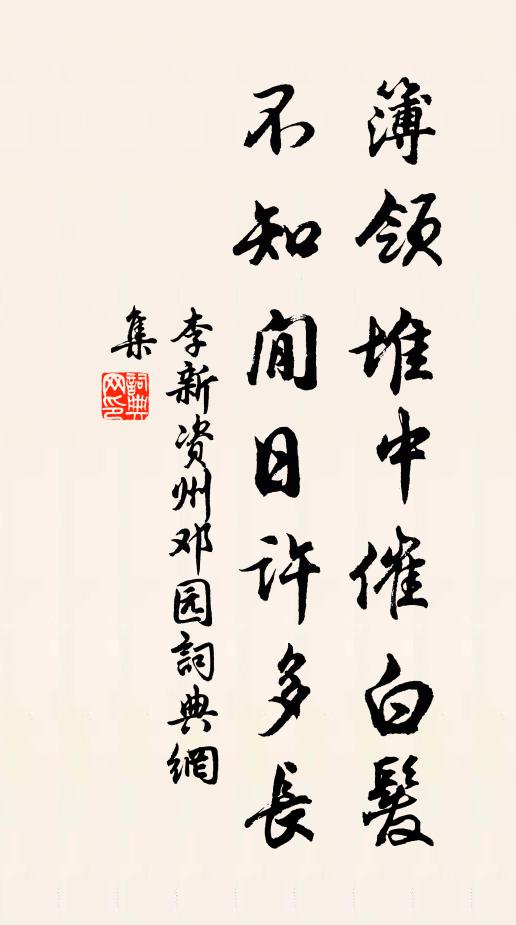 簿领堆中催白髮
不知閒日许多長
李新资州邓园詞典網
集
詞典网印